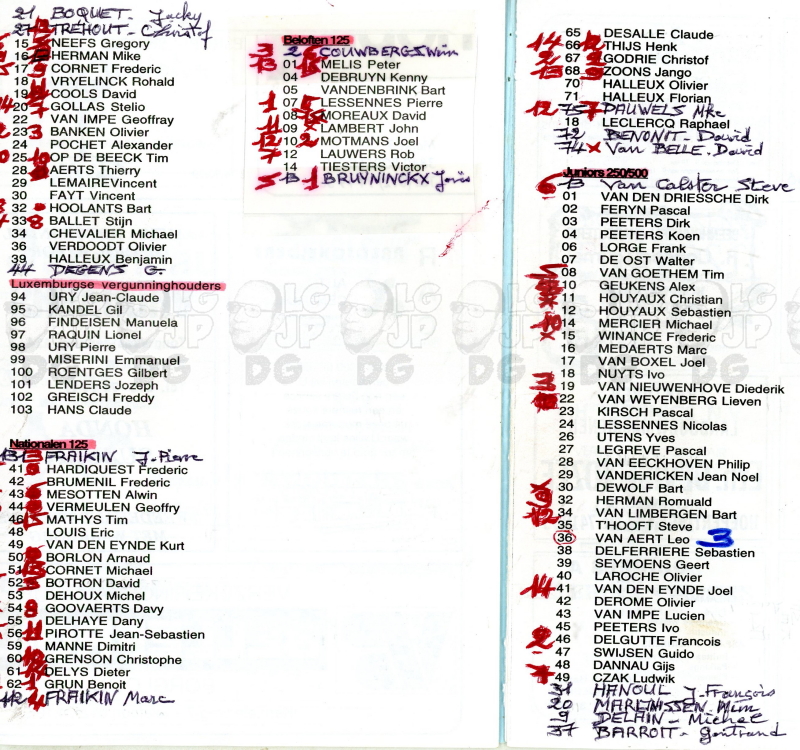 21 BOQUET - Jacky
27 TREHOUT - Christof
15 NEEFS Gregory
16 HERMAN Mike
17 CORNET Frederic
18 VRYELINCK Rohald
19 COOLS David
20 GOLLAS Stelio
22 VAN IMPE Geoffray
23 BANKEN Olivier
24 POCHET Alexander
25 OP DE BEECK Tim
28 AERTS Thierry
29 LEMAIREVincent
30 FAYT Vincent
32 HOOLANTS Bart
33 BALLET Stijn
34 CHEVALIER Michael
36 VERDOODT Olivier
39 HALLEUX Benjamin
44 DEGENS G.
Luxemburgse vergunninghouders
94 URY Jean-Claude
95 KANDEL Gil
96 FINDEISEN Manuela
97 RAQUIN Lionel
98 URY Pierre
99 MISERINI Emmanuel
100 ROENTGES Gilbert
101 LENDERS Jozeph
102 GREISCH Freddy
103 HANS Claude
Nationalen 125
131 FRAIKIN J-Pierre
41 HARDIQUEST Frederic
42 BRUMENIL Frederic
43 MESOTTEN Alwin
44 VERMEULEN Geoffry
46 MATHYS Tim
48 LOUIS Eric
49 VAN DEN EYNDE Kurt
50 BORLON Arnaud
51 CORNET Michael
52 BOTRON David
53 DEHOUX Michel
54 GOOVAERTS Davy
55 DELHAYE Dany
56 PIROTTE Jean-Sebastien
59 MANNE Dimitri
60 GRENSON Christophe
61 DELYS Dieter
62 GRUN Benoit
FRAIKIN Marc
Beloften 125
3 2 COUWBERGS Wim
13 01 MELIS Peter
04 DEBRUYN Kenny
05 VANDENBRINK Bart
1 07 LESSENNES Pierre
08 MOREAUX David
11 09 LAMBERT John
12 10 2 MOTMANS Joel
7 12 LAUWERS Rob
14 TIESTERS Victor
5 13 1 BRUYNINCKX Joris
65 DESALLE Claude
14 66 THIJS Henk
2 67 GODRIE Christof
13 68 ZOONS Jango
70 HALLEUX Olivier
71 HALLEUX Florian
12 75 7 PAUWELS Mke
18 LECLERCQ Raphael
72 BENONIT - David
74 x Van BELLE - David
Juniors 250/500
6 13 Van Calster Steve
01 VAN DEN DRIESSCHE Dirk
02 FERYN Pascal
03 PEETERS Dirk
04 PEETERS Koen
06 LORGE Frank
07 DE OST Walter
08 VAN GOETHEM Tim
10 GEUKENS Alex
11 HOUYAUX Christian
12 HOUYAUX Sebastien
14 MERCIER Michael
x 15 WINANCE Frederic
16 MEDAERTS Marc
17 VAN BOXEL Joel
18 NUYTS Ivo
19 VAN NIEUWENHOVE Diederik
22 VAN WEYENBERG Lieven
23 KIRSCH Pascal
24 LESSENNES Nicolas
26 UTENS Yves
27 LEGREVE Pascal
28 VAN EECKHOVEN Philip
29 VANDERICKEN Jean Noel
30 DEWOLF Bart
32 HERMAN Romuald
34 VAN LIMBERGEN Bart
35 T'HOOFT Steve
36 VAN AERT Leo 3
38 DELFERRIERE Sebastien
39 SEYMOENS Geert
40 LAROCHE Olivier
14 41 VAN DEN EYNDE Joel
42 DEROME Olivier
43 VAN IMPE Lucien
45 PEETERS Ivo
2 46 DELGUTTE Francois
47 SWIJSEN Guido
48 DANNAU Gijs
49 CZAK Ludwik
31 HANOUL J-François
20 MARTNISSEN Wim
9 DELAIN - Michael
37 BARROIT - Gontrand
LG JP DG
LG JP DG
LG JP DG
LG JP DG
LG JP DG